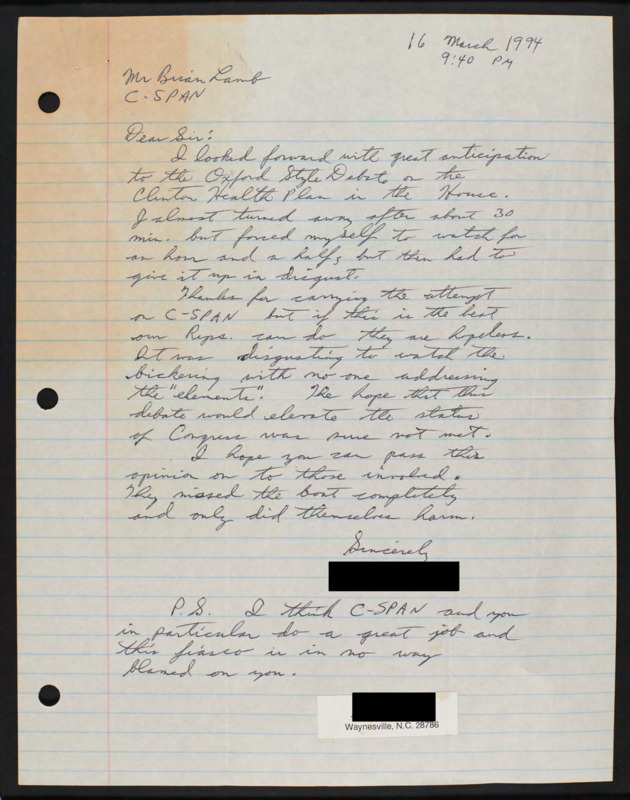 16 March 1994
9:40 PM
Mr Brian Lamb
C-SPAN
Dear Sir:
I looked forward with great anticipation
to the Oxford Style Debate on the
Clinton Health Plan in the House.
I almost turned away after about 30
min. but forced myself to watch for
an hour and a half, but then had to
give it up in disgust.
Thanks for carrying the attempt
on C-SPAN but if this is the best
our Reps. can do they are hopeless.
It was disgusting to watch the
bickering with no-one addressing
the "elements". The hope that this
debate would elevate the status
of Congress was sure not met.
I hope you can pass this
opinion on to those involved.
They missed the boat completely
and only did themselves harm.
Sincerely
P.S. I think C-SPAN and you
in particular do a great job and
this fiasco is in no way
blamed on you.
Waynesville, N.C. 28786